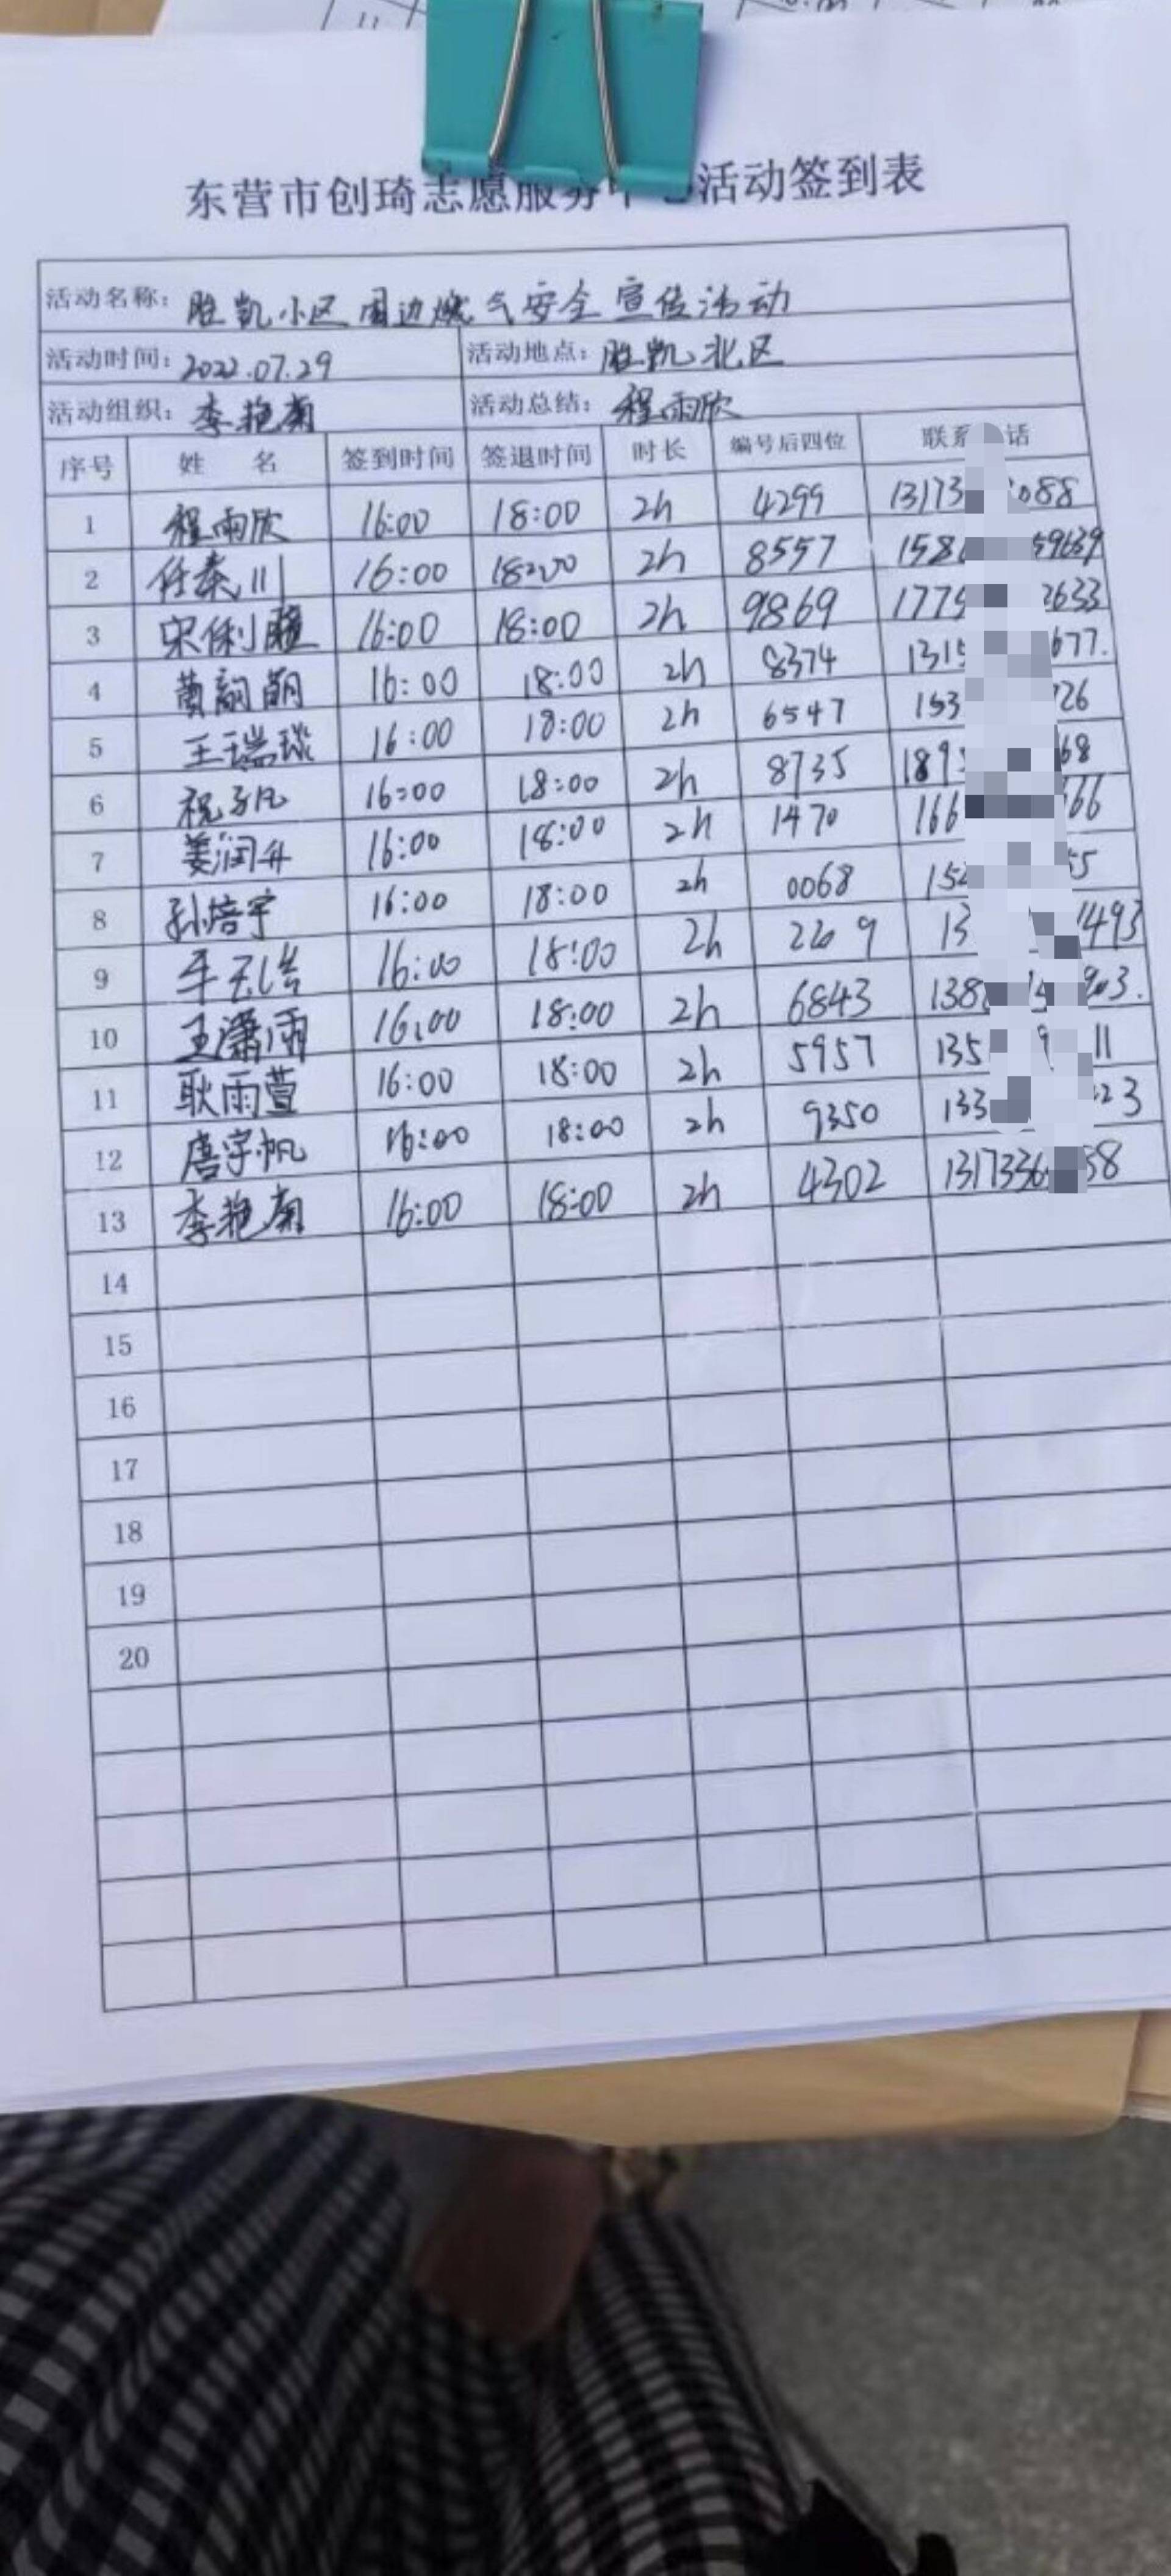 东营市创琦志愿服务中心活动签到表
活动名称：胜凯小区周边燃气安全宣传活动
活动时间：2022.07.29 活动地点：胜凯北区
活动组织：李艳菊 活动总结：程雨欣
序号 姓名 签到时间 签退时间 时长 编号后四位 联系 话
1 程雨欣 16:00 18:00 2h 4299 13173 088
2 任秦川 16:00 18:00 2h 8557 158 59639
3 宋俐 16:00 18:00 2h 9869 1775 2633
4 黄嗣萌 16:00 18:00 2h 8374 1315 677.
5 王瑞琰 16:00 18:00 2h 6547 153 726
6 祝子凡 16:00 18:00 2h 8735 189 68
7 姜润升 16:00 18:00 2h 1470 166 66
8 孙培宇 16:00 18:00 2h 0068 152 55
9 16:00 18:00 2h 2209 13 1493
10 王潇雨 16:00 18:00 2h 6843 138 903.
11 耿雨萱 16:00 18:00 2h 5957 135 9 11
12 唐宇帆 16:00 18:00 2h 9350 133 23
13 李艳菊 16:00 18:00 2h 4302 1317336 58
14
15
16
17
18
19
20